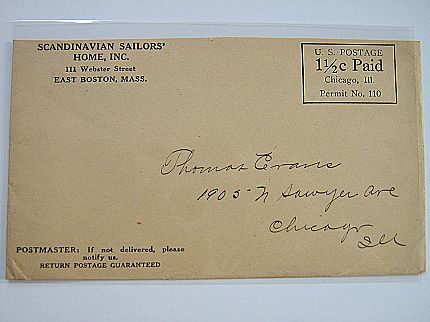 SCANDINAVIAN SAILORS'
HOME, INC.
111 Webster Street
EAST BOSTON, MASS.
U. S. POSTAGE
1½c Paid
Chicago, Ill.
Permit No. 110
Thomas Evans
1905 N Sawyer Ave
Chicago
Ill
POSTMASTER: If not delivered, please
notify us.
RETURN POSTAGE GUARANTEED